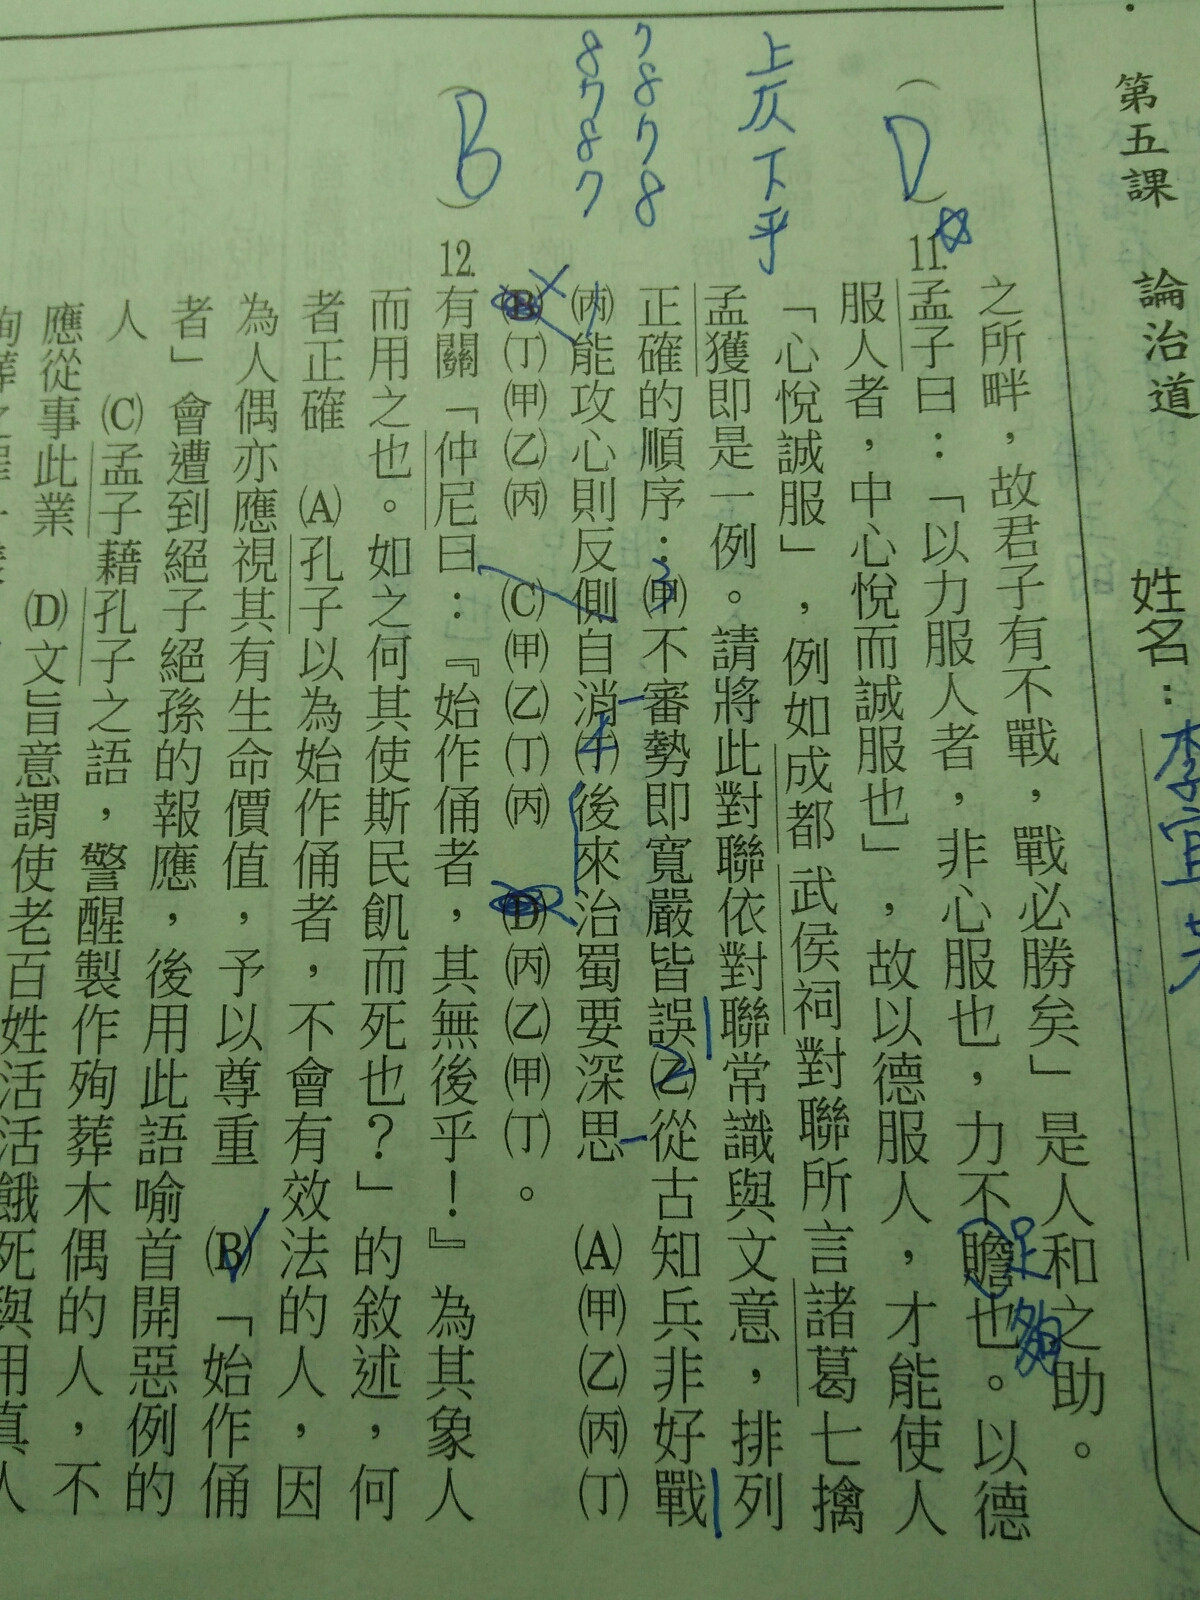 第五課 論治道
姓名：李宜
之所畔，故君子有不戰，戰必勝矣」是人和之助。
(D)☆11.孟子曰：「以力服人者，非心服也，力不贍也。以德
足夠
服人者，中心悅而誠服也」，故以德服人，才能使人
「心悅誠服」，例如成都武侯祠對聯所言諸葛七擒
孟獲即是一例。請將此對聯依對聯常識與文意，排列
正確的順序：㈙不審勢即寬嚴皆誤㈚從古知兵非好戰
3
2
㈛能攻心則反側自消㈜後來治蜀要深思 (A)㈙㈚㈛㈜
1
4
(B)㈜㈙㈚㈛ (C)㈙㈚㈜㈛ (D)㈛㈚㈙㈜。
上仄下平
7878
8787
(B)12.有關「仲尼曰：『始作俑者，其無後乎！』為其象人
而用之也。如之何其使斯民飢而死也？」的敘述，何
者正確 (A)孔子以為始作俑者，不會有效法的人，因
為人偶亦應視其有生命價值，予以尊重 (B)「始作俑
者」會遭到絕子絕孫的報應，後用此語喻首開惡例的
人 (C)孟子藉孔子之語，警醒製作殉葬木偶的人，不
應從事此業 (D)文旨意謂使老百姓活活餓死與用真人
殉葬之罪